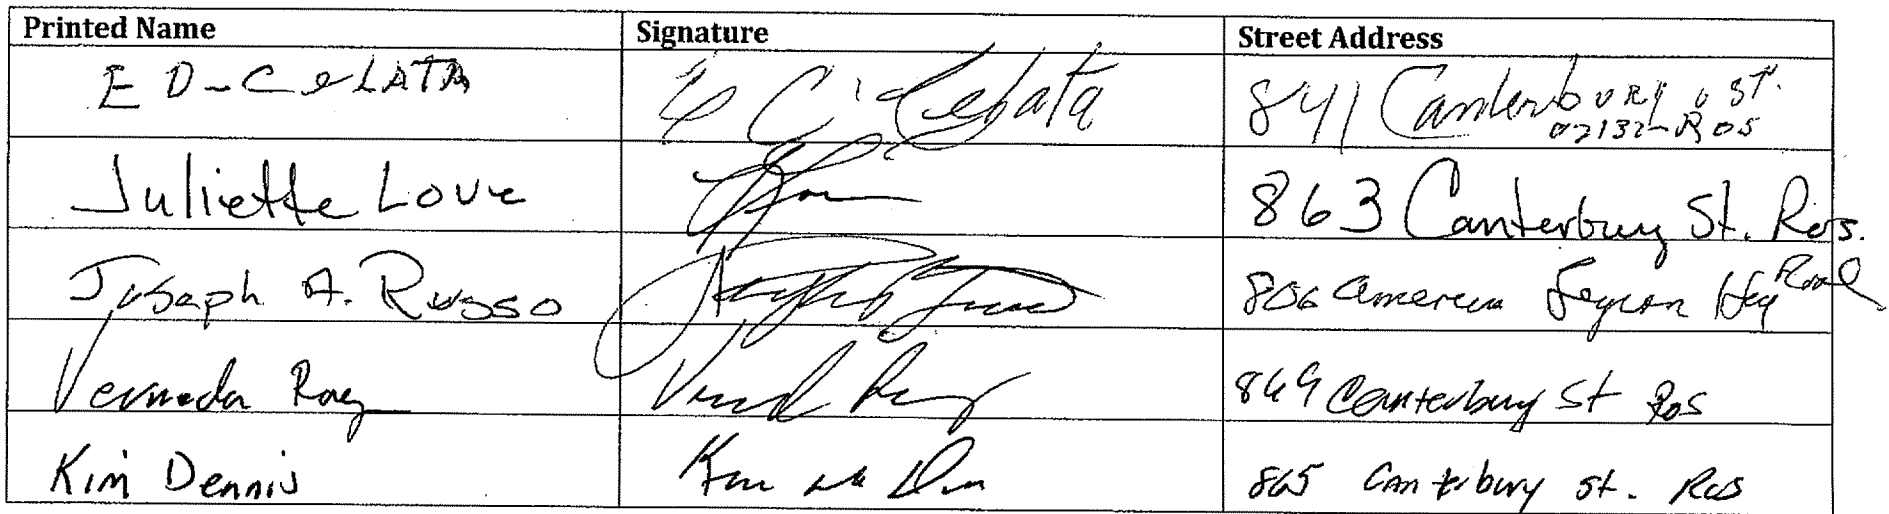 Printed Name Signature Street Address
ED-CeLATA E C. Celata 841 Canterbury St.
02132-Ros
Juliette Love 863 Canterbury St. Ros.
Joseph A. Russo 806 American Legion Hwy Rosl
Verneda Ray 869 Canterbury St Ros
Kim Dennis Kim 865 Canterbury St. Ros